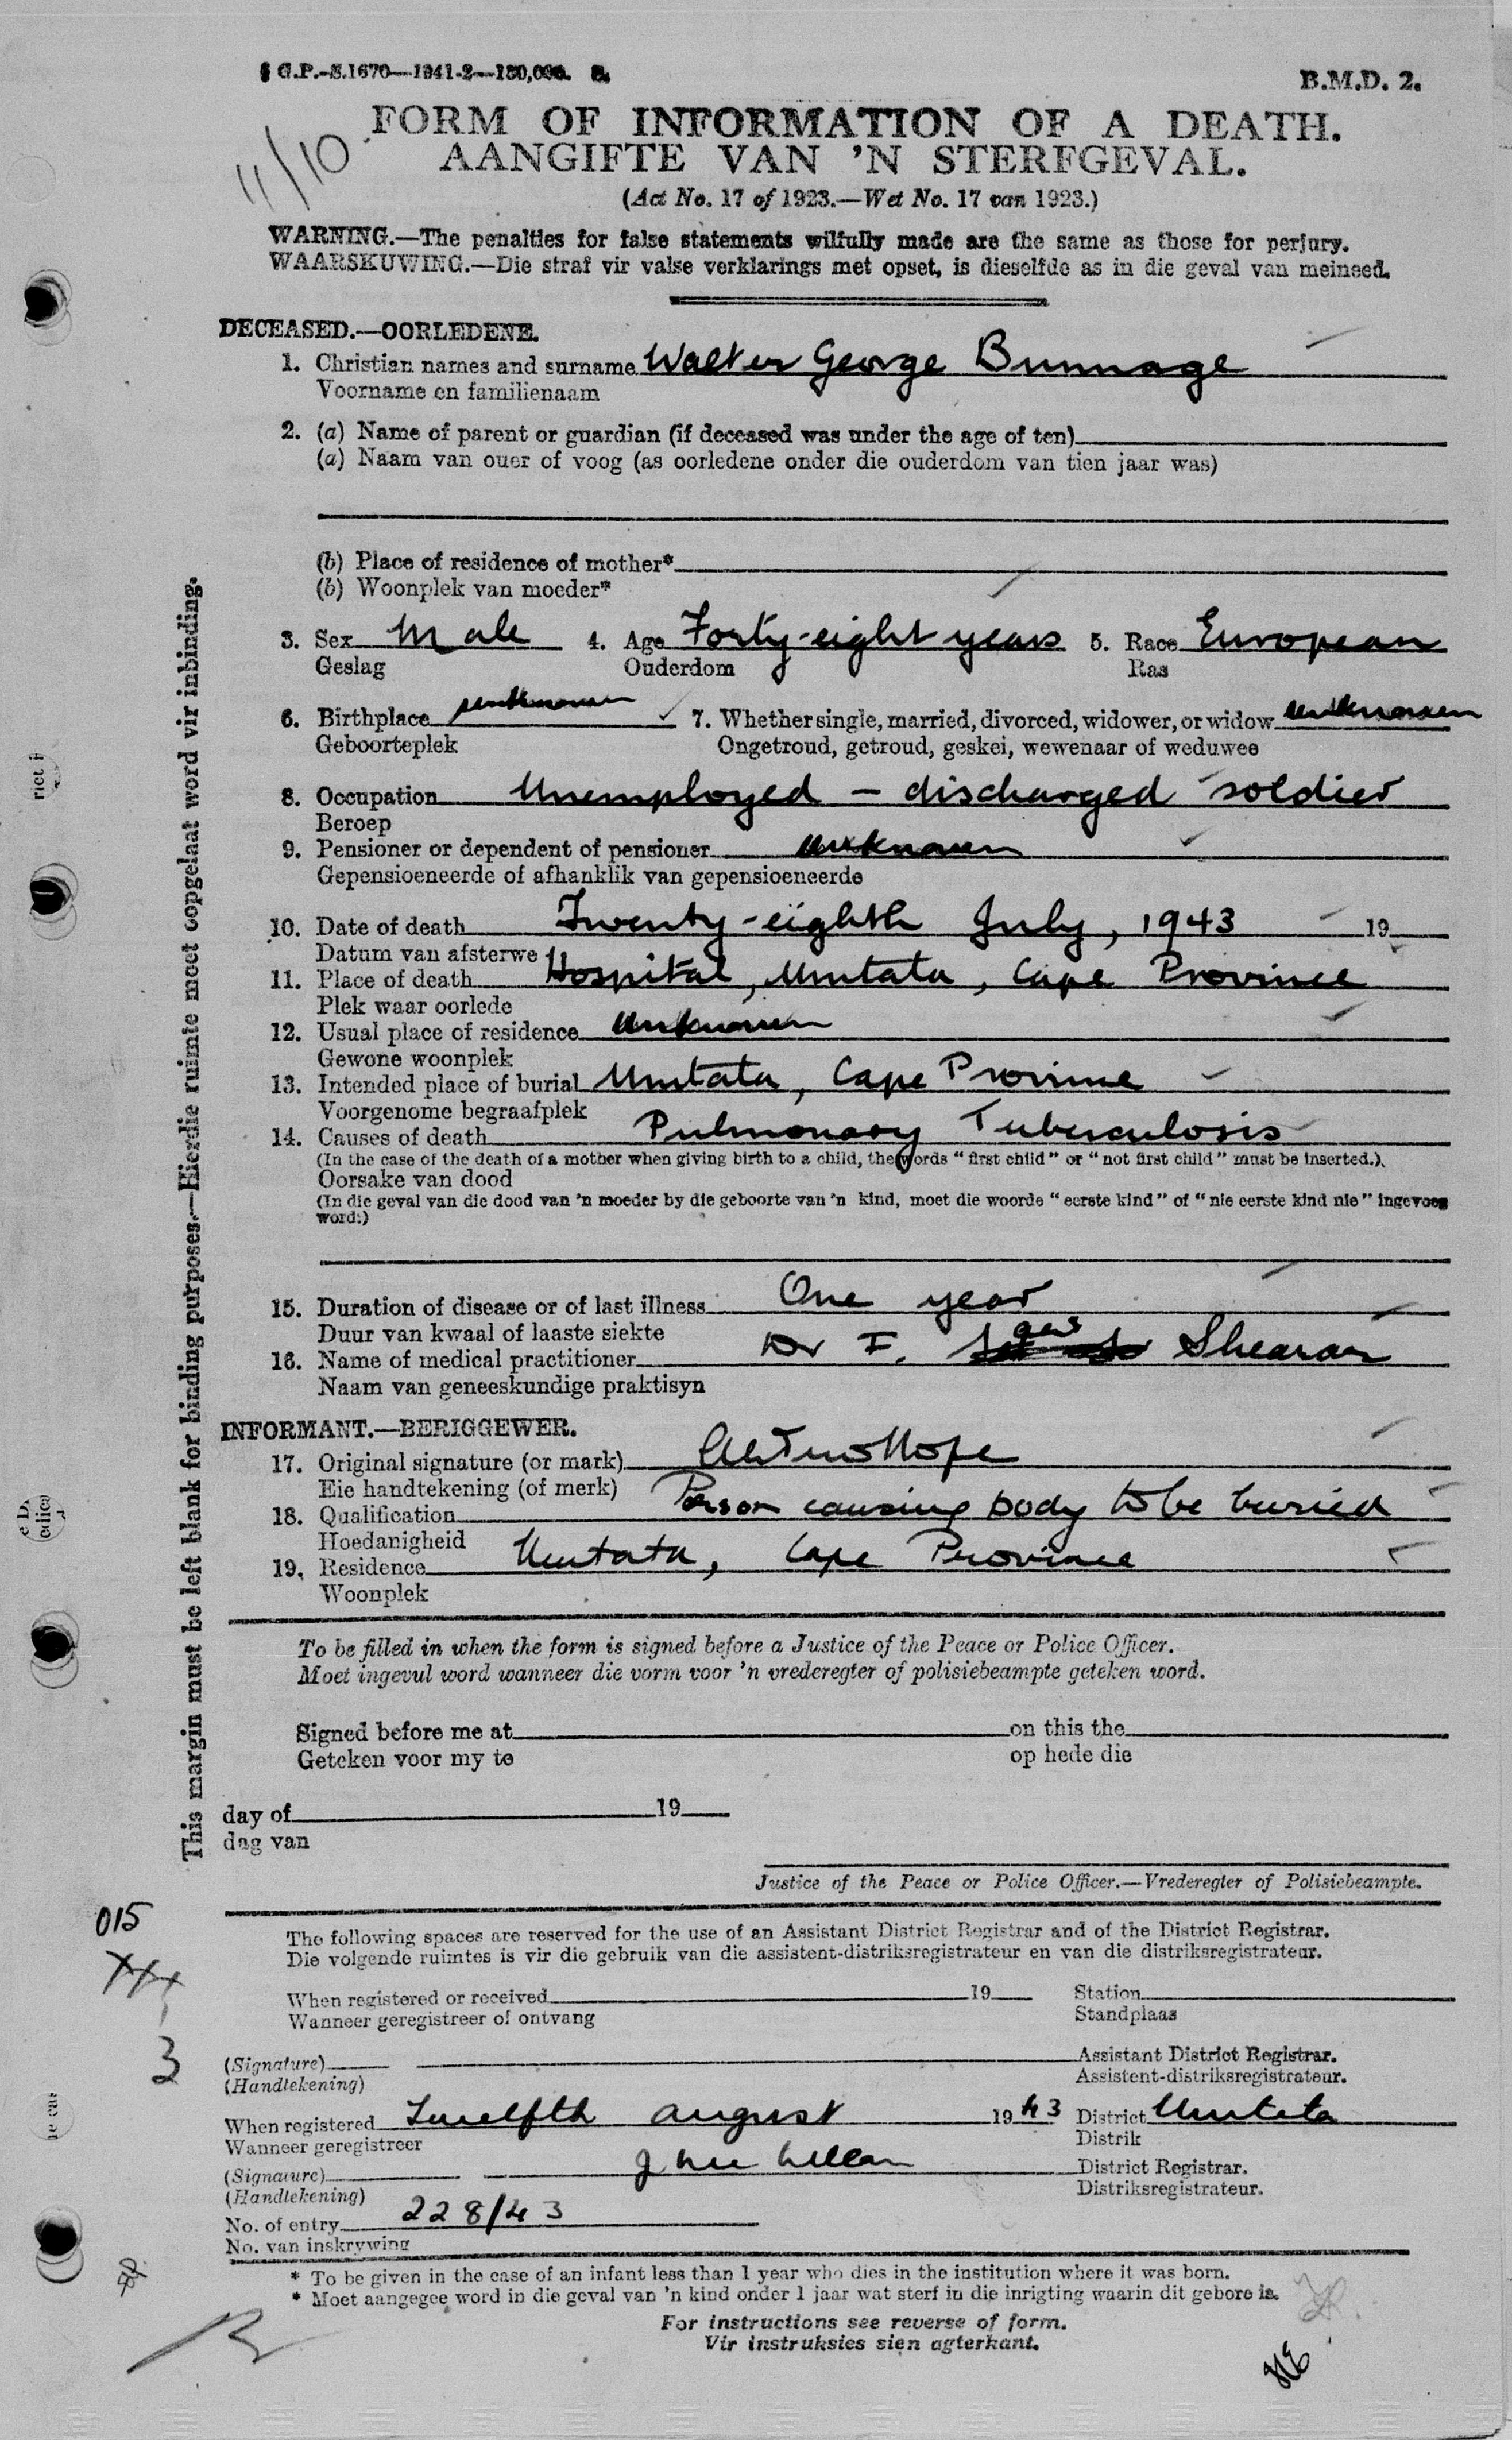 G.P.-S.1670—1941-2—150,000. S.
B.M.D. 2.
11/10
FORM OF INFORMATION OF A DEATH.
AANGIFTE VAN 'N STERFGEVAL.
(Act No. 17 of 1923.—Wet No. 17 van 1923.)
WARNING.—The penalties for false statements wilfully made are the same as those for perjury.
WAARSKUWING.—Die straf vir valse verklarings met opset, is dieselfde as in die geval van meineed.
DECEASED.—OORLEDENE.
1. Christian names and surname Walter George Brumage
Voorname en familienaam
2. (a) Name of parent or guardian (if deceased was under the age of ten)
(a) Naam van ouer of voog (as oorledene onder die ouderdom van tien jaar was)
(b) Place of residence of mother*
(b) Woonplek van moeder*
3. Sex Male 4. Age Forty-eight years 5. Race European
Geslag Ouderdom Ras
6. Birthplace unknown 7. Whether single, married, divorced, widower, or widow unknown
Geboorteplek Ongetroud, getroud, geskei, wewenaar of weduwee
8. Occupation Unemployed — discharged soldier
Beroep
9. Pensioner or dependent of pensioner unknown
Gepensioeneerde of afhanklik van gepensioeneerde
10. Date of death Twenty-eighth July, 1943 19
Datum van afsterwe
11. Place of death Hospital, Umtata, Cape Province
Plek waar oorlede
12. Usual place of residence Unknown
Gewone woonplek
13. Intended place of burial Umtata, Cape Province
Voorgenome begraafplek
14. Causes of death Pulmonary Tuberculosis
(In the case of the death of a mother when giving birth to a child, the words "first child" or "not first child" must be inserted.)
Oorsake van dood
(In die geval van die dood van 'n moeder by die geboorte van 'n kind, moet die woorde "eerste kind" of "nie eerste kind nie" ingevoeg
word.)
15. Duration of disease or of last illness One year
Duur van kwaal of laaste siekte
16. Name of medical practitioner Dr F. Shearar
Naam van geneeskundige praktisyn
INFORMANT.—BERIGGEWER.
17. Original signature (or mark)
Eie handtekening (of merk)
18. Qualification Person causing body to be buried
Hoedanigheid
19. Residence Umtata, Cape Province
Woonplek
To be filled in when the form is signed before a Justice of the Peace or Police Officer.
Moet ingevul word wanneer die vorm voor 'n vrederegter of polisiebeampte geteken word.
Signed before me at on this the
Geteken voor my te op hede die
day of 19
dag van
Justice of the Peace or Police Officer.—Vrederegter of Polisiebeampte.
015
The following spaces are reserved for the use of an Assistant District Registrar and of the District Registrar.
Die volgende ruimtes is vir die gebruik van die assistent-distriksregistrateur en van die distriksregistrateur.
When registered or received 19 Station
Wanneer geregistreer of ontvang Standplaas
3
(Signature) Assistant District Registrar.
(Handtekening) Assistent-distriksregistrateur.
When registered Twelfth August 1943 District Umtata
Wanneer geregistreer Distrik
(Signature) District Registrar.
(Handtekening) Distriksregistrateur.
No. of entry 228/43
No. van inskrywing
* To be given in the case of an infant less than 1 year who dies in the institution where it was born.
* Moet aangegee word in die geval van 'n kind onder 1 jaar wat sterf in die inrigting waarin dit gebore is.
For instructions see reverse of form.
Vir instruksies sien agterkant.
This margin must be left blank for binding purposes.—Hierdie ruimte moet oopgelaat word vir inbinding.